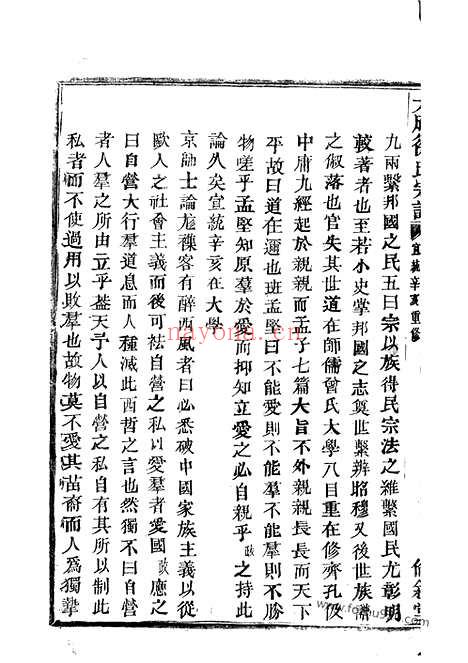 宗譜
宣統辛亥重修
九兩繫邦國之民五曰宗以族得民宗法之維繫國民尤彰明
較著者也至若小史掌邦國之志奠世繫辨昭穆又後世族譜
之俶落也官失其世道在師儒曾氏大學八目重在修齊孔伋
中庸九經起於親親而孟子七篇大旨不外親親長長而天下
平故曰道在邇也班孟堅曰不能愛則不能羣不能羣則不勝
物嗟乎孟堅知原羣於愛而抑知立愛之必自親乎政之持此
論久矣宣統辛亥在大學
京師士論尨襍客有醉西風者曰必悉破中國家族主義以從
歐人之社會主義而後可祛自營之私以愛羣者愛國政應之
曰自營大行羣道息而人種滅此西哲之言也然獨不曰自營
者人羣之所由立乎葢天予人以自營之私自有其所以制此
私者而不使過用以敗羣也故物莫不愛其苗裔而人爲獨摯
nayona.cn